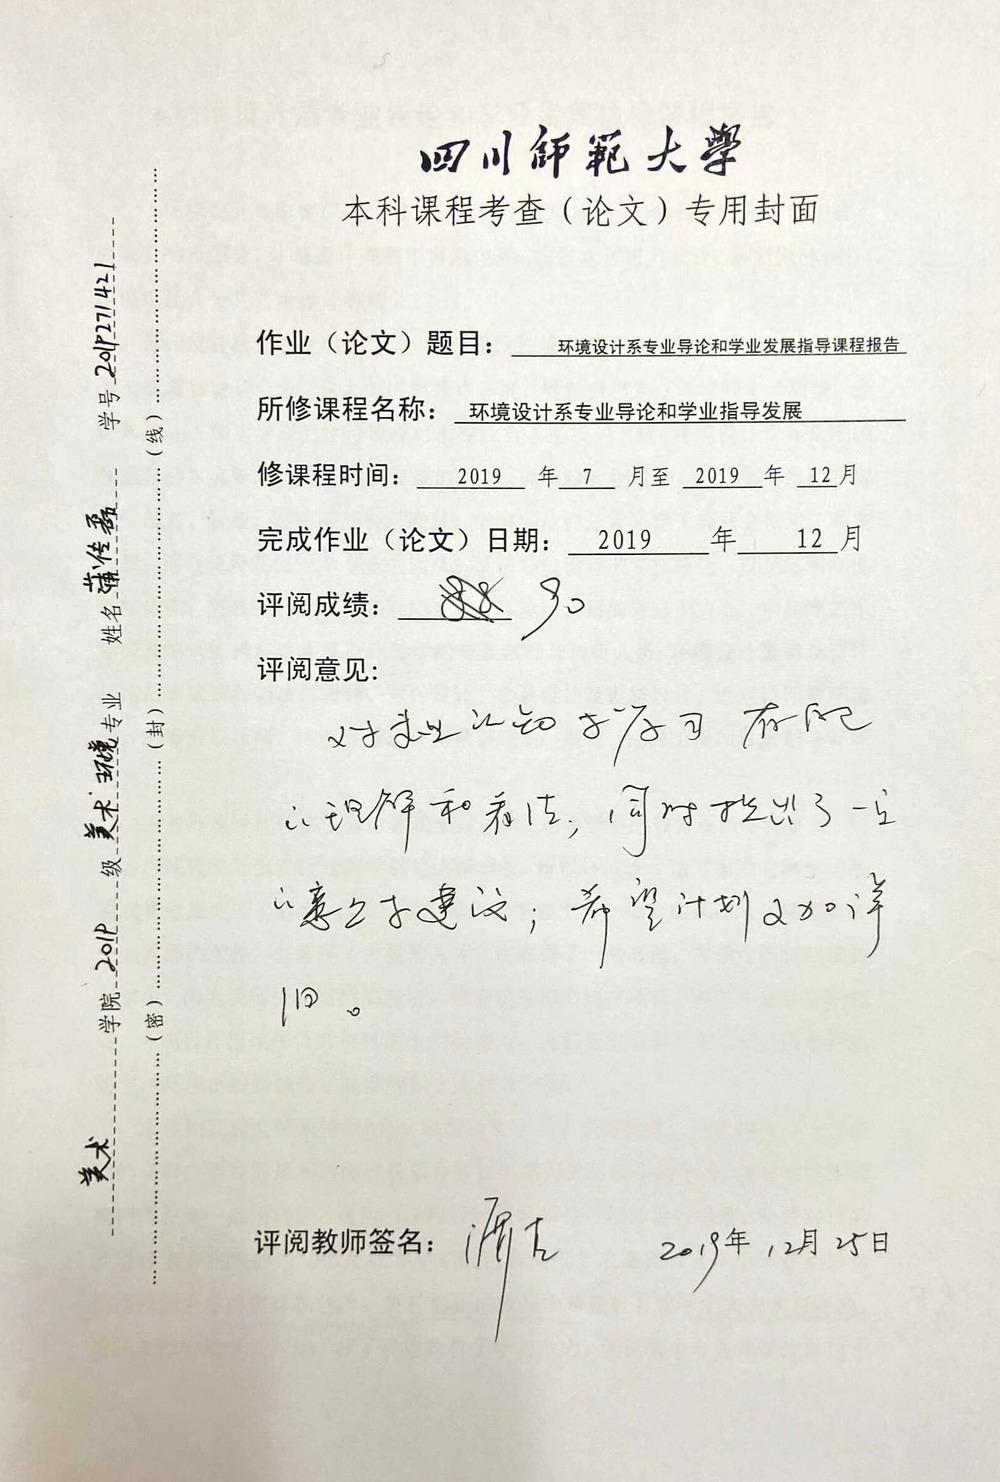 四川師範大學
本科课程考查（论文）专用封面
作业（论文）题目：环境设计系专业导论和学业发展指导课程报告
所修课程名称：环境设计系专业导论和学业指导发展
修课程时间：2019 年 7 月至 2019 年 12 月
完成作业（论文）日期：2019 年 12 月
评阅成绩：90
评阅意见：
对专业认知和学习有自己
的理解和看法，同时指出了一些
的意见和建议；希望计划更加详
细。
评阅教师签名：
2019年 12月 25日
美术 学院 2019 级 美术·环境 专业 姓名 蒲传磊 学号 2019271421
（密）（封）（线）